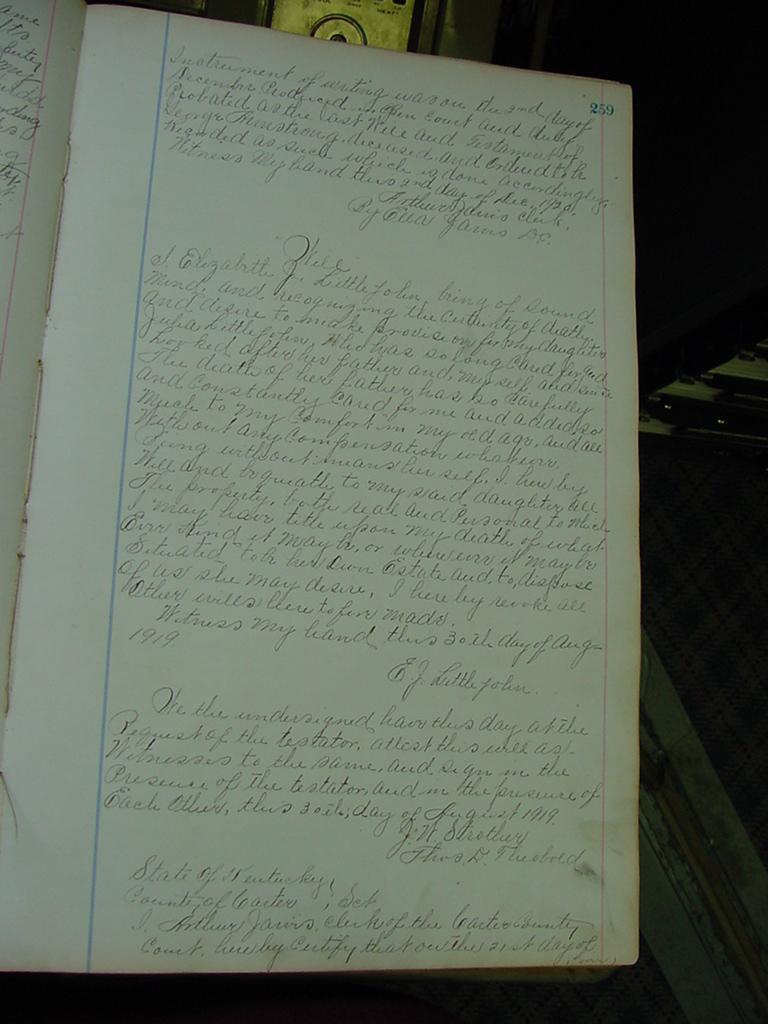 259
Instrument of writing was on the 2nd day of
December Produced in Open Court and duly
Probated as the last Will and Testament of
George Armstrong, deceased, and Ordered to be
Recorded as such which is done accordingly.
Witness My hand this 2nd day of Dec. 1920.
Arthur Jarvis Clerk.
By Ella Jarvis D.C.
"Will"
I. Elizabeth J. Littlejohn, being of Sound
Mind, and recognizing the Certainty of death,
And desire to make provision for my daughter
Julia Littlejohn, Who has so long Cared for and
Looked after her father and, my self, and since
The death of her father, has so Carefully
And Constantly Cared for me and added so
Much to my Comfort in my old age, and all
Without any Compensation whatever.
Being without means her self, I hereby
Will and bequeath to my said daughter, all
The property, both real and Personal to which
I may have title upon my death, of what-
Ever Kind it may be, or where ever it may be
Situated to be her Own Estate and, to, dispose
Of as she may desire, I hereby revoke all
Other wills here to fore made.
Witness My hand, this 30th day of Aug-
1919.
E. J. Littlejohn.
We the undersigned have this day at the
Request of the testator, attest this will as-
Witnesses to the same, and sign in the
Presence of the testator, and in the presence of
Each Other, this 30th, day of August 1919.
J. W. Strother
Thos. D. Theobold
State of Kentucky,
County of Carter, Sct
I. Arthur Jarvis, Clerk of the Carter County
Court, hereby Certify that on the 21st day of